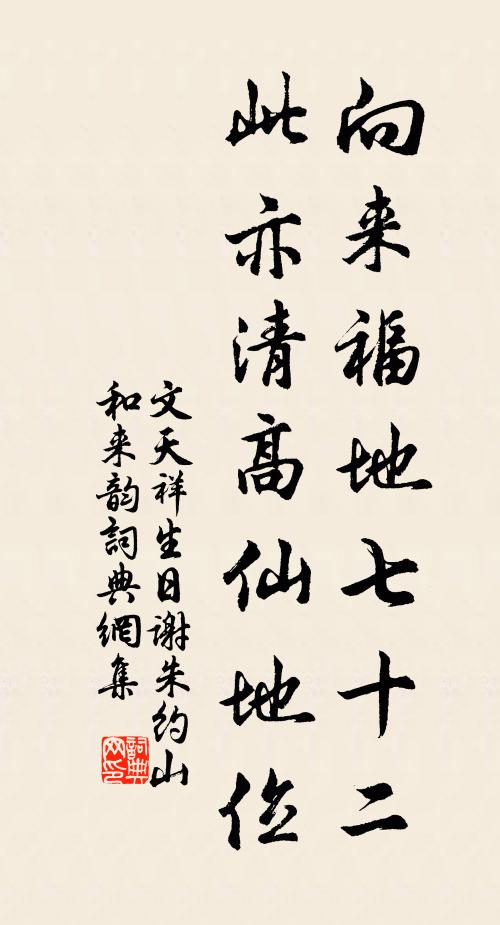 向来福地七十二
此亦清高仙地位
文天祥生日谢朱约山
和来韵词典網集
詞典网印